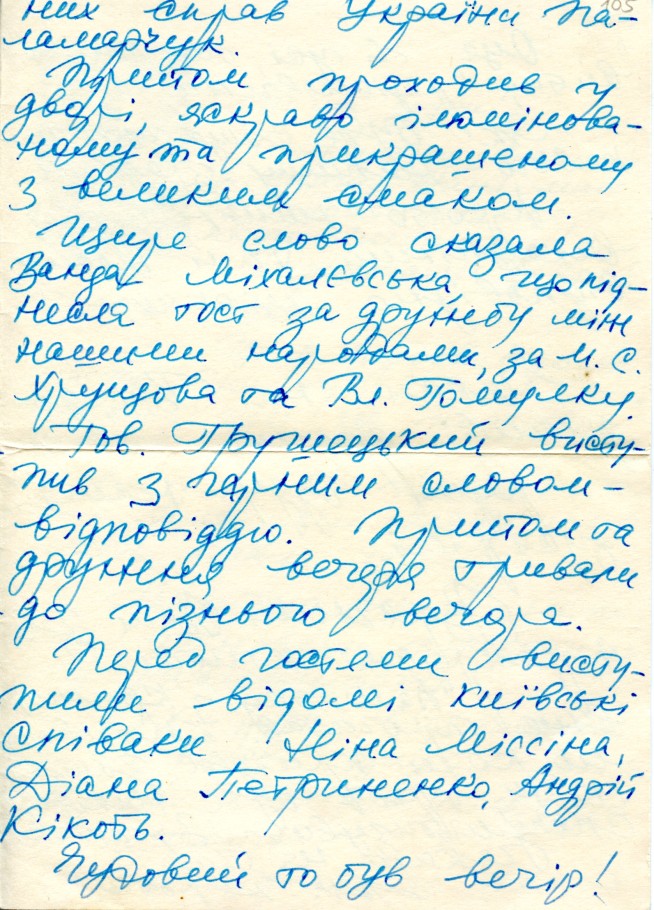 105
них справ України Па-
ламарчук.
Прийом проходив у
дворі, яскраво ілюмінова-
ному та прикрашеному
з великим смаком.
Щире слово сказала
Ванда Міхалєвська, що під-
несла тост за дружбу між
нашими народами, за М. С.
Хрущова та Вл. Гомулку.
Тов. Грушецький висту-
пив з гарним словом-
відповіддю. Прийом та
дружня вечеря тривали
до пізнього вечора.
Перед гостями висту-
пили відомі київські
співаки Ніна Міссіна,
Діана Петриненко, Андрій
Кікоть.
Чудовий то був вечір!